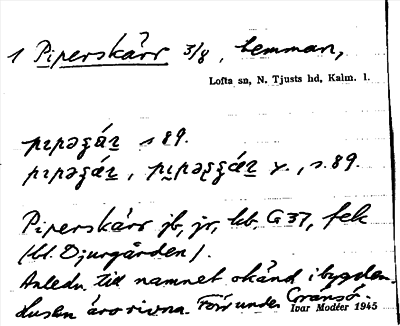 1 Piperskärr 3/8, hemman,
Lofta sn, N. Tjusts hd, Kalm. l.
s. 89.
y., s. 89.
Piperskärr jb, jr, hb, G 37, fek
(bl. Djurgården).
Anledn. till namnet okänd i bygden.
Husen äro rivna. Förr under Gransö.
Ivar Modéer 1945